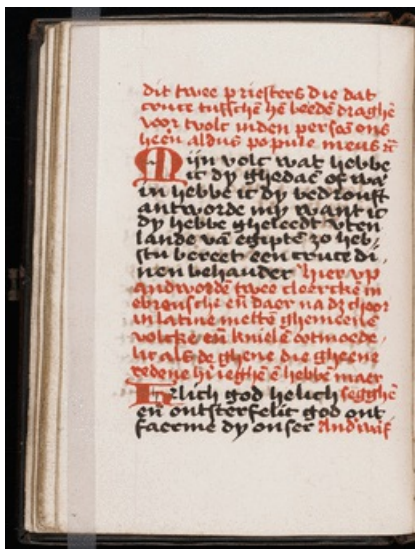 dit twee priesters die dat
cruce tusschē hē beedē draghē
voor tvolc inden persōs ons
heerē aldus popule meus rc̄
Mijn volc wat hebbe
ic dy ghedaē of wā
in hebbe ic dy bedrouft
antworde my want ic
dy hebbe gheleedt vten
lande vā egiptē zo heb,
stu bereet een cruce di,
nen behauder hier vp
andworden twee cleercken in
ebreusche en̄ daer na dz choor
in latine metten ghemeenē
volcke en̄ knielē ootmoede,
lic als de ghene die gheene
redene hi ieghē ē hebbē maer
Helich god helich segghē
en̄ ontsterfelic god ont
faerme dy onser Andwas